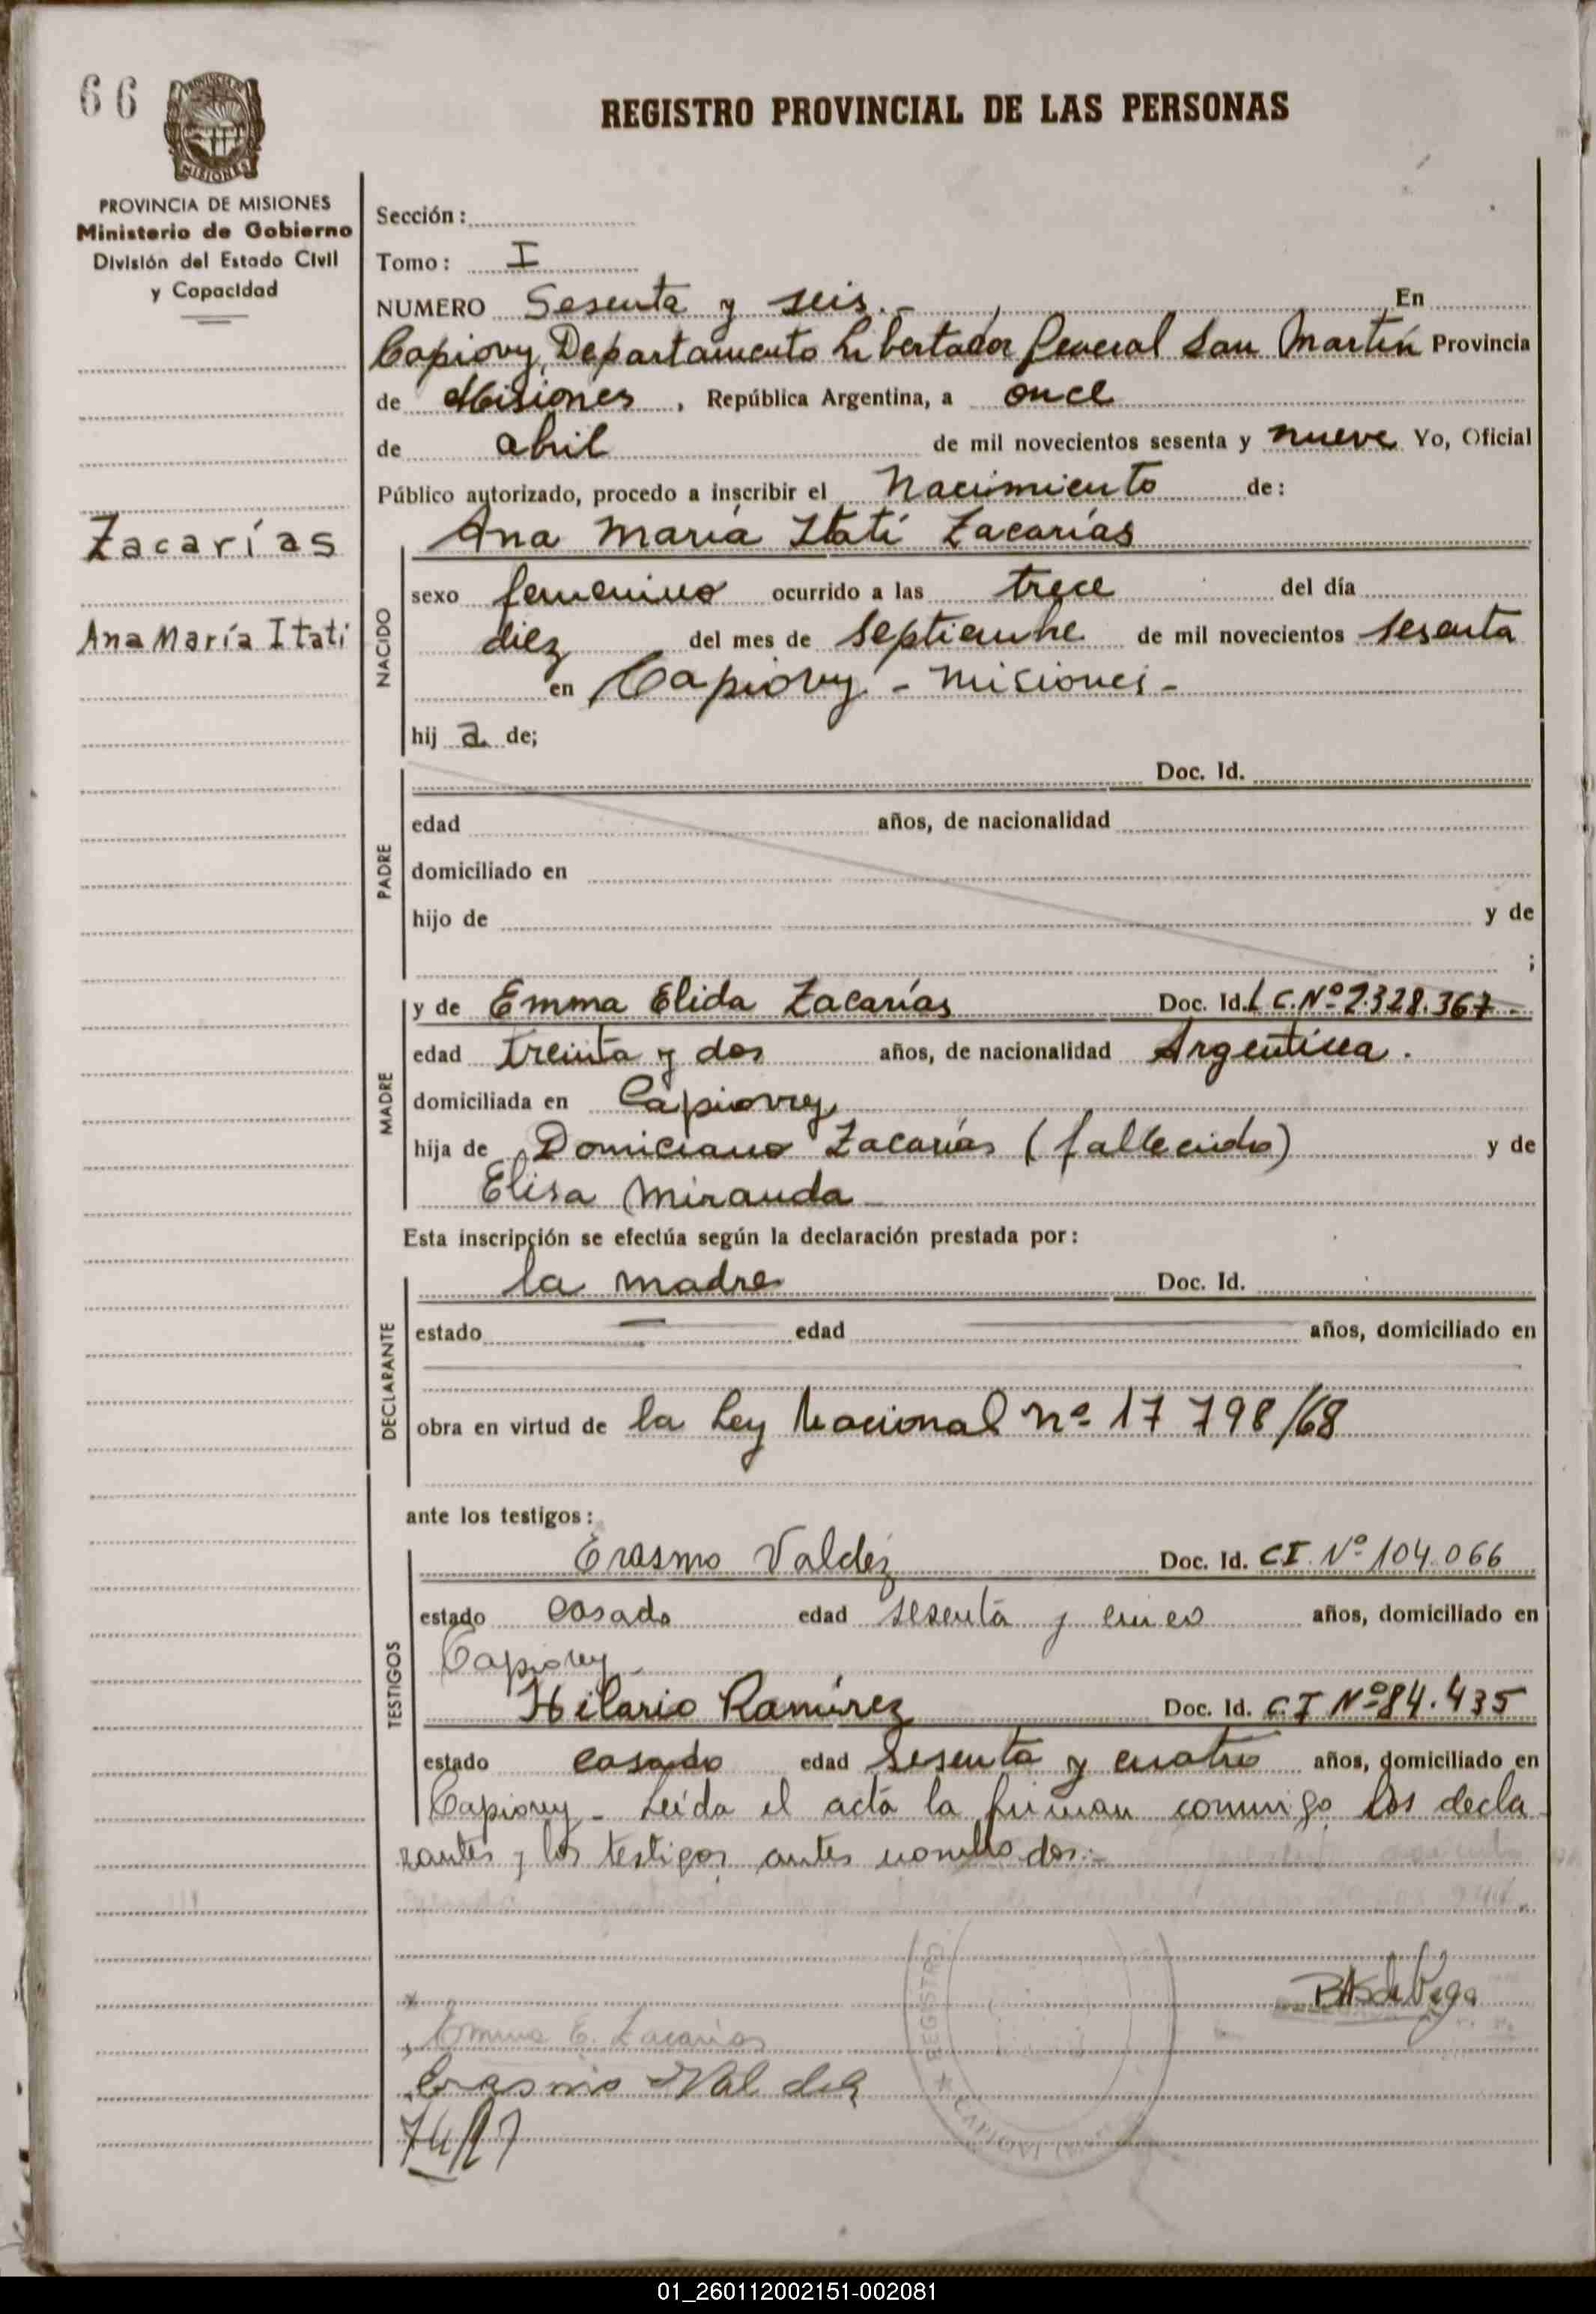 66
REGISTRO PROVINCIAL DE LAS PERSONAS
MISIONES
PROVINCIA DE MISIONES
Ministerio de Gobierno
División del Estado Civil
y Capacidad
Sección:
Tomo: I
NUMERO Sesenta y seis.- En
Capiovy, Departamento Libertador General San Martín Provincia
de Misiones, República Argentina, a once
de abril de mil novecientos sesenta y nueve Yo, Oficial
Público autorizado, procedo a inscribir el Nacimiento de:
Zacarías
Ana María Itatí Zacarías
sexo femenino ocurrido a las trece del día
Ana María Itatí
NACIDO
diez del mes de septiembre de mil novecientos sesenta
en Capiovy - Misiones -
hij a de;
PADRE
Doc. Id.
edad años, de nacionalidad
domiciliado en
hijo de y de
;
MADRE
y de Emma Elida Zacarías Doc. Id. L C. Nº 2.328.367 -
edad treinta y dos años, de nacionalidad Argentina.
domiciliada en Capiovy
hija de Domiciano Zacarías (fallecido) y de
Elisa Miranda
Esta inscripción se efectúa según la declaración prestada por:
DECLARANTE
la madre Doc. Id.
estado edad años, domiciliado en
obra en virtud de la Ley Nacional nº 17 798/68
ante los testigos:
TESTIGOS
Erasmo Valdéz Doc. Id. CI. Nº 104.066
estado casado edad sesenta y cinco años, domiciliado en
Capiovy
Hilario Ramírez Doc. Id. C.I Nº 84.435
estado casado edad sesenta y cuatro años, domiciliado en
Capiovy - Leída el acta la firman conmigo los decla
rantes y los testigos antes nombrados.-
Emma E. Zacarías
Erasmo Valdez
REGISTRO
CAPIOVI
01_260112002151-002081